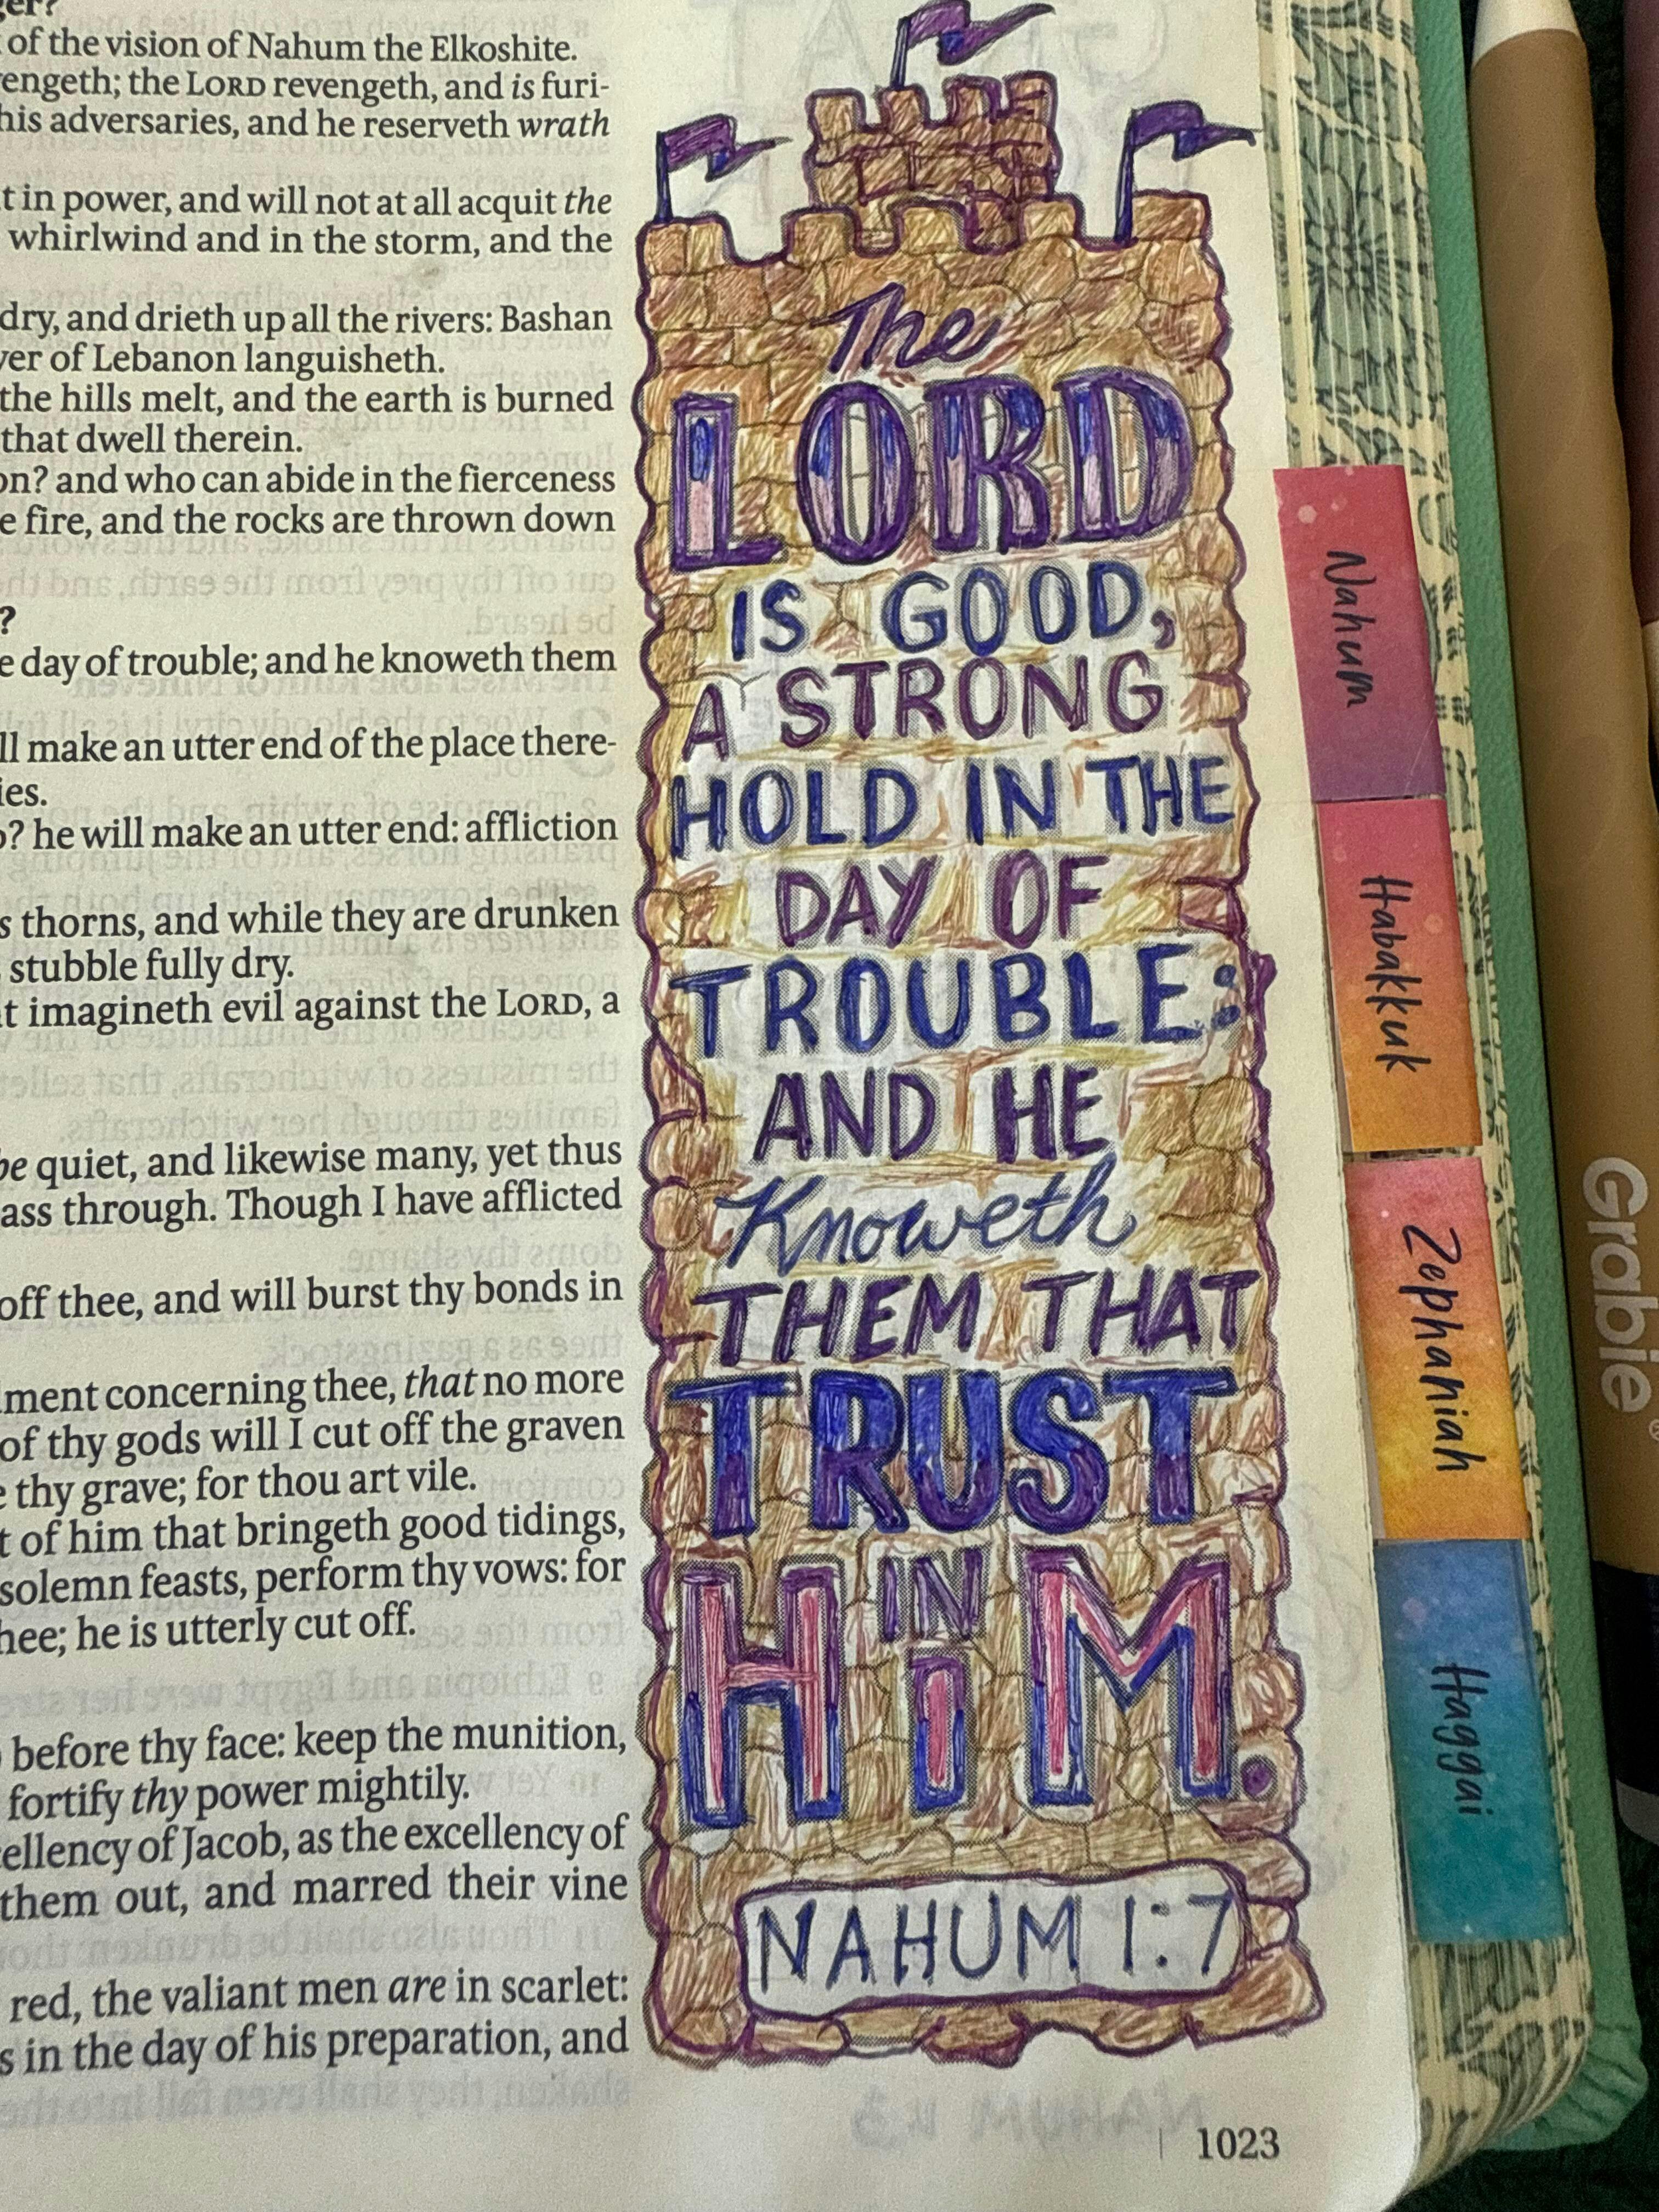 of the vision of Nahum the Elkoshite.
the LORD revengeth, and is furi-
his adversaries, and he reserveth wrath
in power, and will not at all acquit the
whirlwind and in the storm, and the
dry, and drieth up all the rivers: Bashan
of Lebanon languisheth.
the hills melt, and the earth is burned
that dwell therein.
and who can abide in the fierceness
fire, and the rocks are thrown down
?
day of trouble; and he knoweth them
make an utter end of the place there-
? he will make an utter end: affliction
thorns, and while they are drunken
stubble fully dry.
imagineth evil against the LORD, a
be quiet, and likewise many, yet thus
through. Though I have afflicted
off thee, and will burst thy bonds in
concerning thee, that no more
of thy gods will I cut off the graven
thy grave; for thou art vile.
of him that bringeth good tidings,
solemn feasts, perform thy vows: for
he is utterly cut off.
before thy face: keep the munition,
fortify thy power mightily.
of Jacob, as the excellency of
them out, and marred their vine
red, the valiant men are in scarlet:
in the day of his preparation, and
The
LORD
IS GOOD,
A STRONG
HOLD IN THE
DAY OF
TROUBLE:
AND HE
Knoweth
THEM THAT
TRUST
IN
HiM.
NAHUM 1:7
1023
Nahum
Habakkuk
Zephaniah
Haggai
Grabie